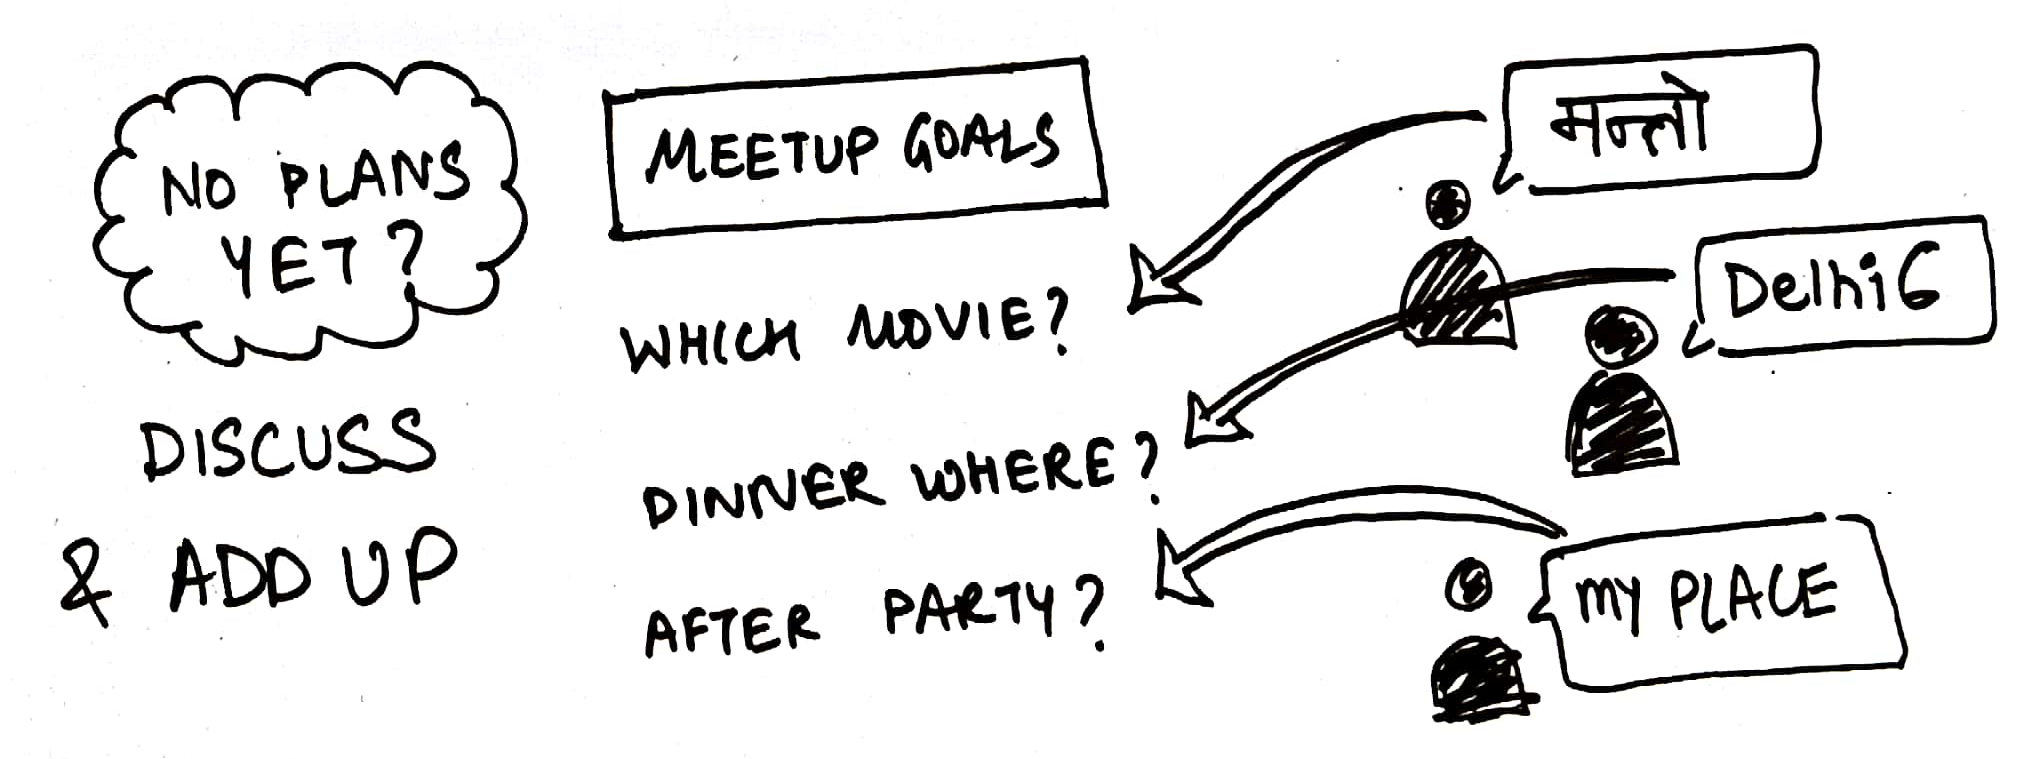 NO PLANS
YET?
DISCUSS
& ADD UP
MEETUP GOALS
WHICH MOVIE?
DINNER WHERE?
AFTER PARTY?
मन्तो
Delhi 6
my PLACE